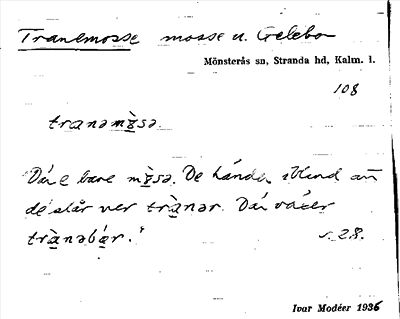 Tranemosse mosse u. Gelebo
Mönsterås sn, Stranda hd, Kalm. l.
108
tranəmo̱̊sə
Dä́r e bare mo̱̊sə. De hä́ndər iblánd an
de slår ner trà̱nər. Där vä́xer
trà̱nəbä́r.
s. 28.
Ivar Modéer 1936